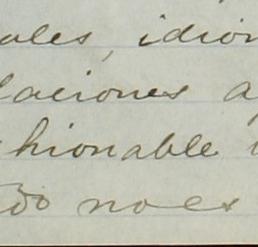 ales, idion
laciones a
shionable
do no es